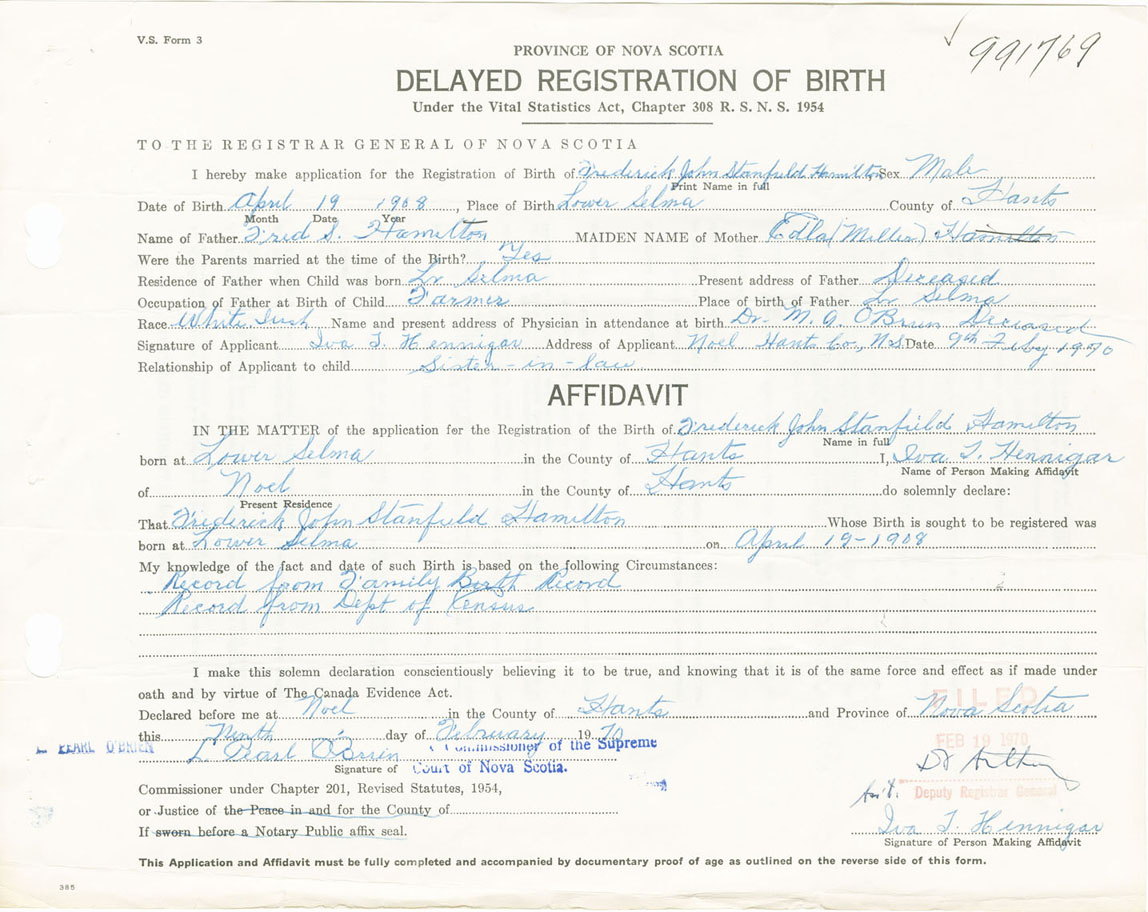 V.S. Form 3
991769
PROVINCE OF NOVA SCOTIA
DELAYED REGISTRATION OF BIRTH
Under the Vital Statistics Act, Chapter 308 R. S. N. S. 1954
TO THE REGISTRAR GENERAL OF NOVA SCOTIA
I hereby make application for the Registration of Birth of Frederick John Stanfield Hamilton Sex Male
Print Name in full
Date of Birth April 19 1908, Place of Birth Lower Selma County of Hants
Month Date Year
Name of Father Fred S. Hamilton MAIDEN NAME of Mother Edla (Miller) Hamilton
Were the Parents married at the time of the Birth? Yes
Residence of Father when Child was born Lr Selma Present address of Father Deceased
Occupation of Father at Birth of Child Farmer Place of birth of Father Lr Selma
Race White Irish Name and present address of Physician in attendance at birth Dr. M. G. O'Brien Deceased
Signature of Applicant Iva T. Hennigar Address of Applicant Noel Hants Co., N.S. Date 9th Feby 1970
Relationship of Applicant to child Sister-in-law
AFFIDAVIT
IN THE MATTER of the application for the Registration of the Birth of Frederick John Stanfield Hamilton
Name in full
born at Lower Selma in the County of Hants I, Iva T. Hennigar
Name of Person Making Affidavit
of Noel in the County of Hants do solemnly declare:
Present Residence
That Frederick John Stanfield Hamilton Whose Birth is sought to be registered was
born at Lower Selma on April 19-1908
My knowledge of the fact and date of such Birth is based on the following Circumstances:
Record from Family Birth Record
Record from Dept of Census
I make this solemn declaration conscientiously believing it to be true, and knowing that it is of the same force and effect as if made under
oath and by virtue of The Canada Evidence Act.
FILED
Declared before me at Noel in the County of Hants and Province of Nova Scotia
this Ninth day of February 1970
FEB 19 1970
L. PEARL O'BRIEN L. Pearl O'Brien Commissioner of the Supreme
Signature of Court of Nova Scotia.
Commissioner under Chapter 201, Revised Statutes, 1954,
Deputy Registrar General
or Justice of the Peace in and for the County of
Iva T. Hennigar
If sworn before a Notary Public affix seal.
Signature of Person Making Affidavit
This Application and Affidavit must be fully completed and accompanied by documentary proof of age as outlined on the reverse side of this form.